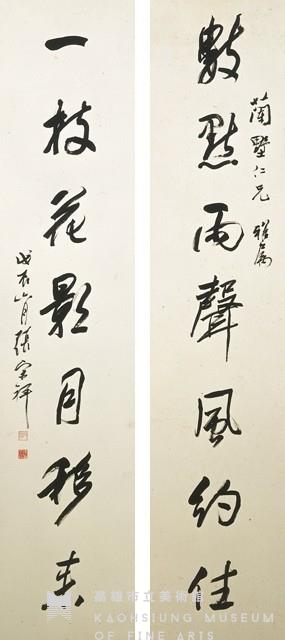 蘭墅仁兄 雅屬
數點雨聲風約住
一枝花影月移來
戊辰六月張宗祥
高雄市立美術館
KAOHSIUNG MUSEUM
OF FINE ARTS